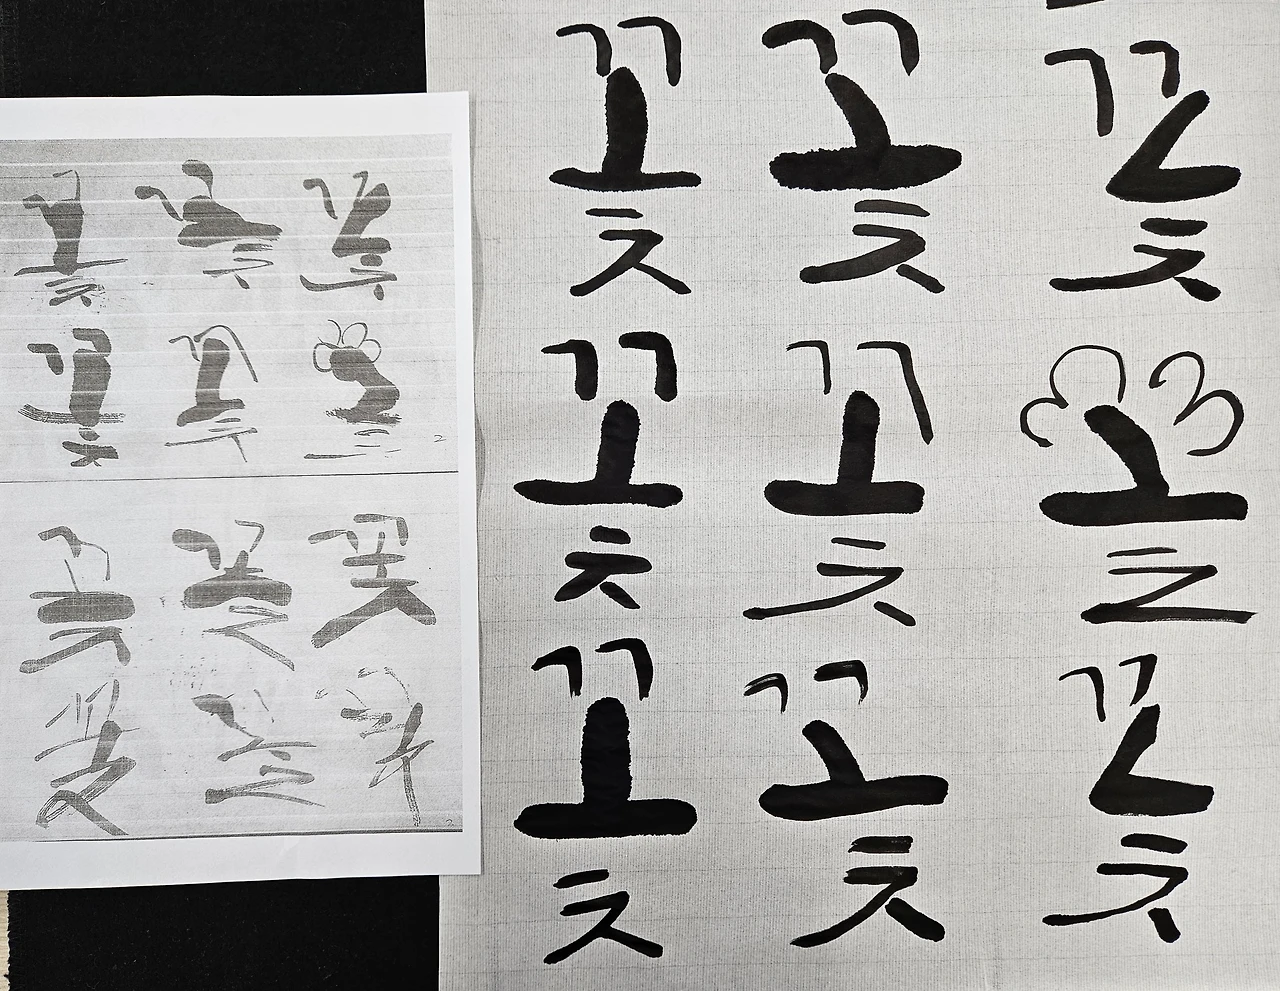 꽃 꽃 꽃
꽃 꽃 꽃
2
꽃 꽃 꽃
꽃 꽃 꽃
2
꽃 꽃 꽃
꽃 꽃 꽃
꽃 꽃 꽃